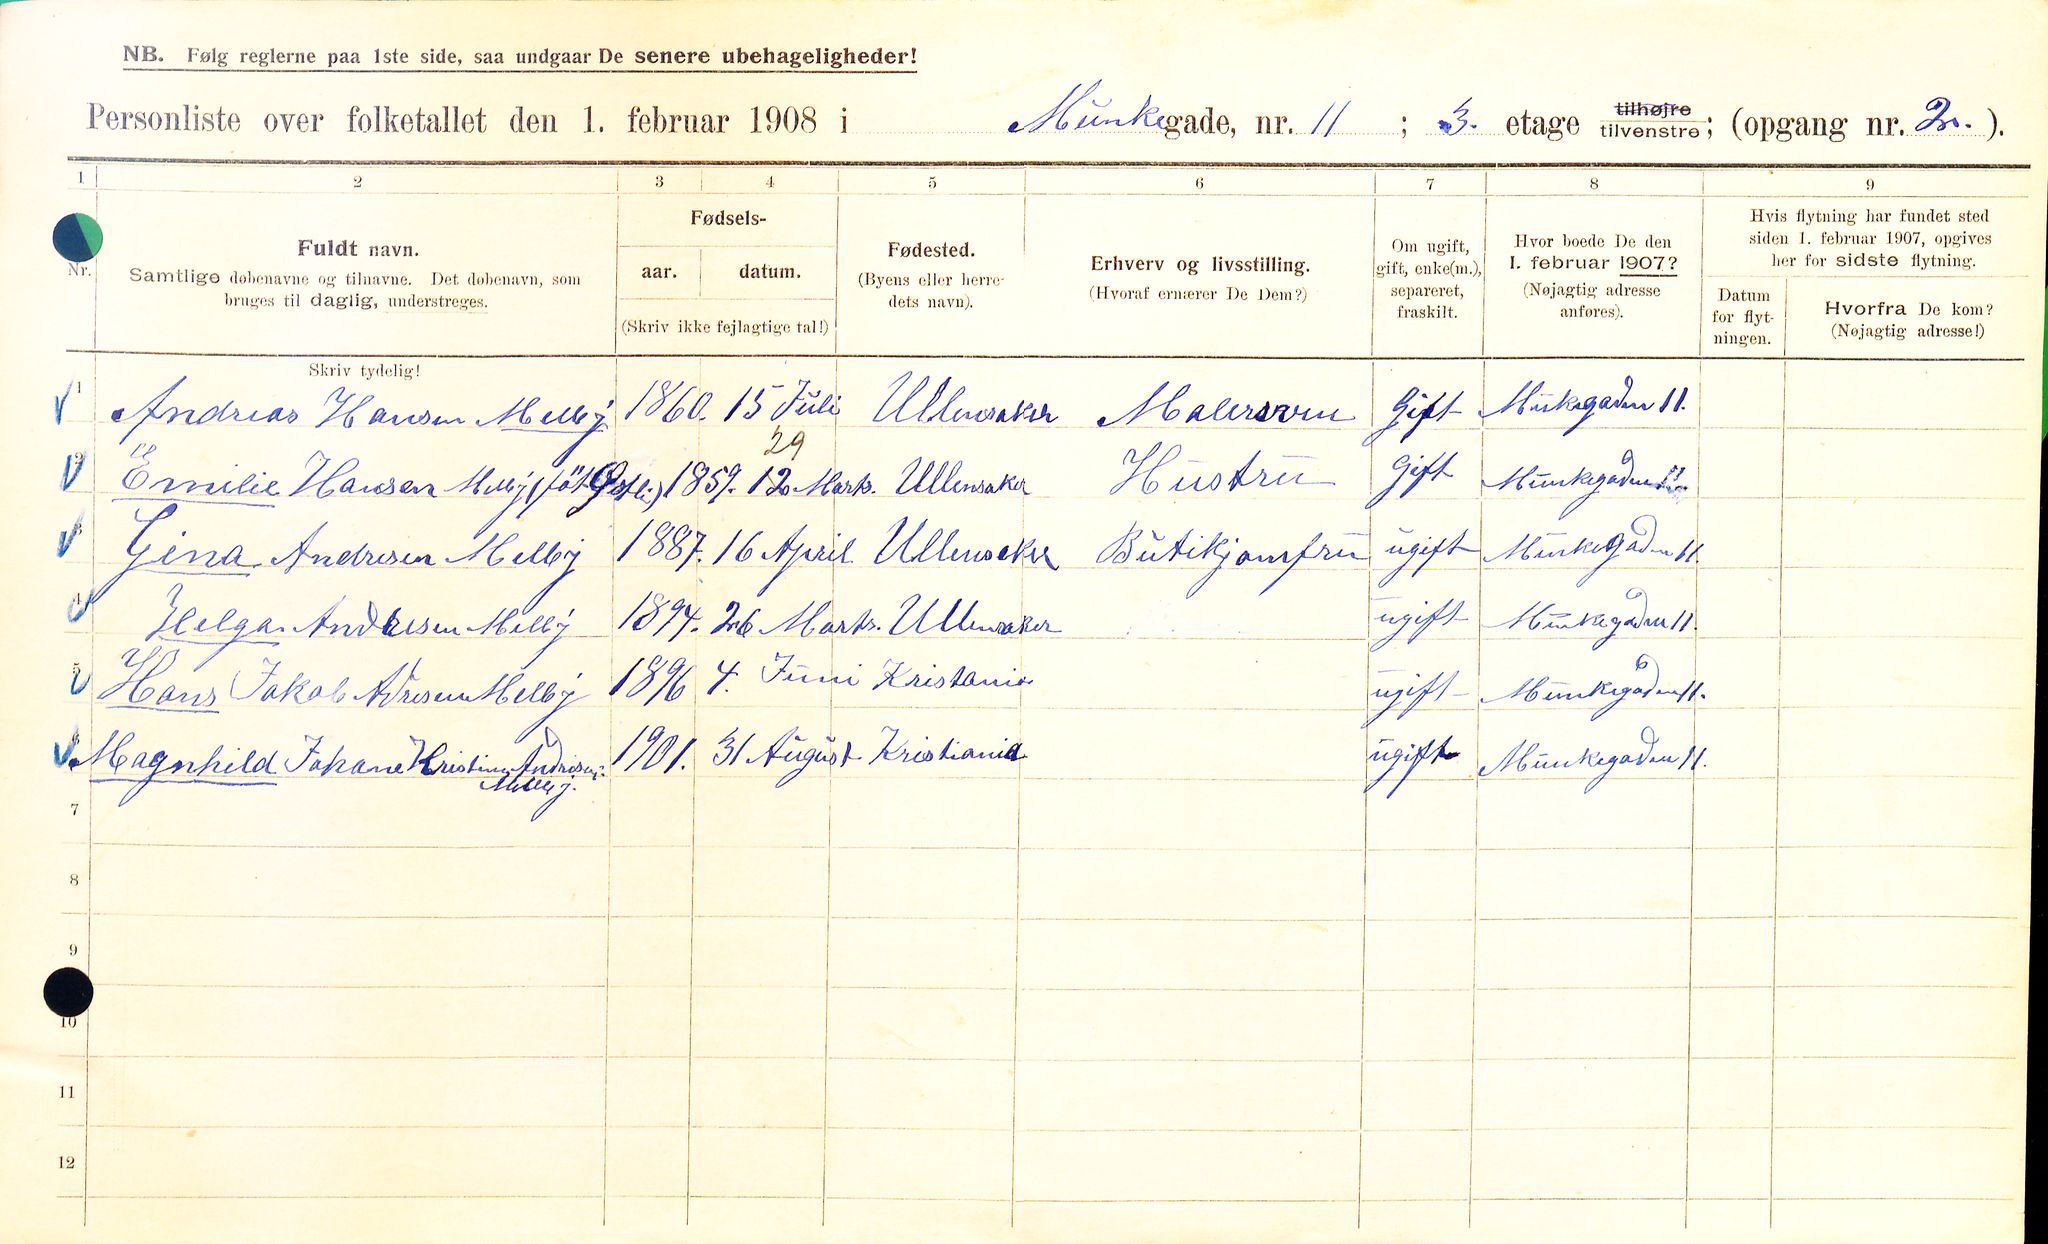 NB. Følg reglerne paa 1ste side, saa undgaar De senere ubehageligheder!
Personliste over folketallet den 1. februar 1908 i Munkegade, nr. 11 ; 3. etage tilhøjre tilvenstre; (opgang nr. 2. ).
1 2 3 4 5 6 7 8 9
Nr.
Fuldt navn.
Samtlige døbenavne og tilnavne. Det døbenavn, som
bruges til daglig, understreges.
Skriv tydelig!
Fødsels-
aar. datum.
(Skriv ikke fejlagtige tal!)
Fødested.
(Byens eller herre-
dets navn).
Erhverv og livsstilling.
(Hvoraf ernærer De Dem?)
Om ugift,
gift, enke(m.),
separeret,
fraskilt.
Hvor boede De den
1. februar 1907?
(Nøjagtig adresse
anføres).
Hvis flytning har fundet sted
siden 1. februar 1907, opgives
her for sidste flytning.
Datum
for flyt-
ningen.
Hvorfra De kom?
(Nøjagtig adresse!)
1 Andreas Hansen Melby 1860. 15 Juli Ullensaker Malersven Gift Munkegaden 11.
29
2 Emilie Hansen Melby (föt Østli) 1859. 12 Marts. Ullensaker Hustru Gift Munkegaden 11.
3 Gina Andresen Melby 1887. 16 April Ullensaker Butikjomfru ugift Munkegaden 11.
4 Helga Andresen Melby 1894. 26 Marts. Ullensaker ugift Munkegaden 11.
5 Hans Jakob Adresen Melby 1896 4. Juni Kristania ugift Munkegaden 11.
6 Magnhild Johane Kristine Andrisen 1901. 31 August Kristiania ugift Munkegaden 11.
Melby.
7
8
9
10
11
12